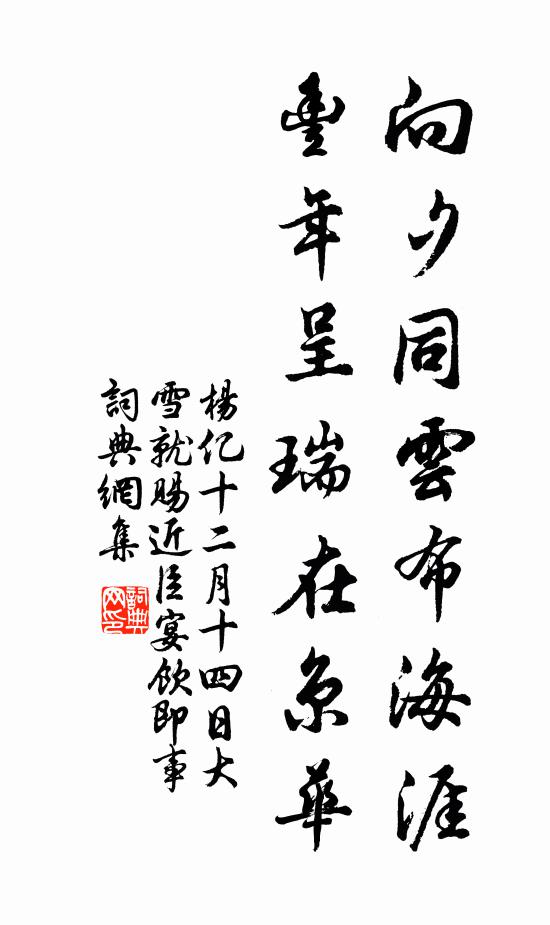 向夕同雲布海涯
豐年呈瑞在京華
楊亿十二月十四日大
雪就賜近臣宴飲即事
詞典網集
詞典
网印